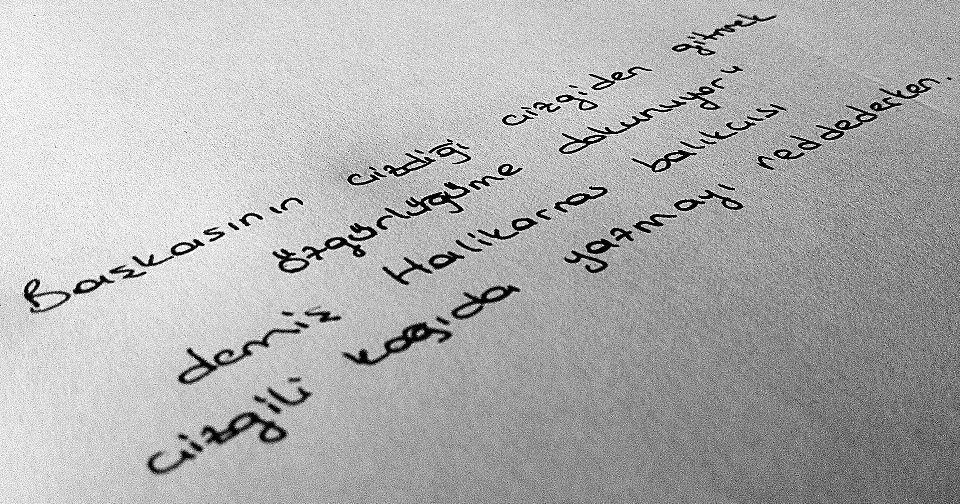 Başkasının çizdiği çizgiden gitmek
özgürlüğüme dokunuyor"
demiş Halikarnas balıkcısı
çizgili kağıda yazmayı reddederken.